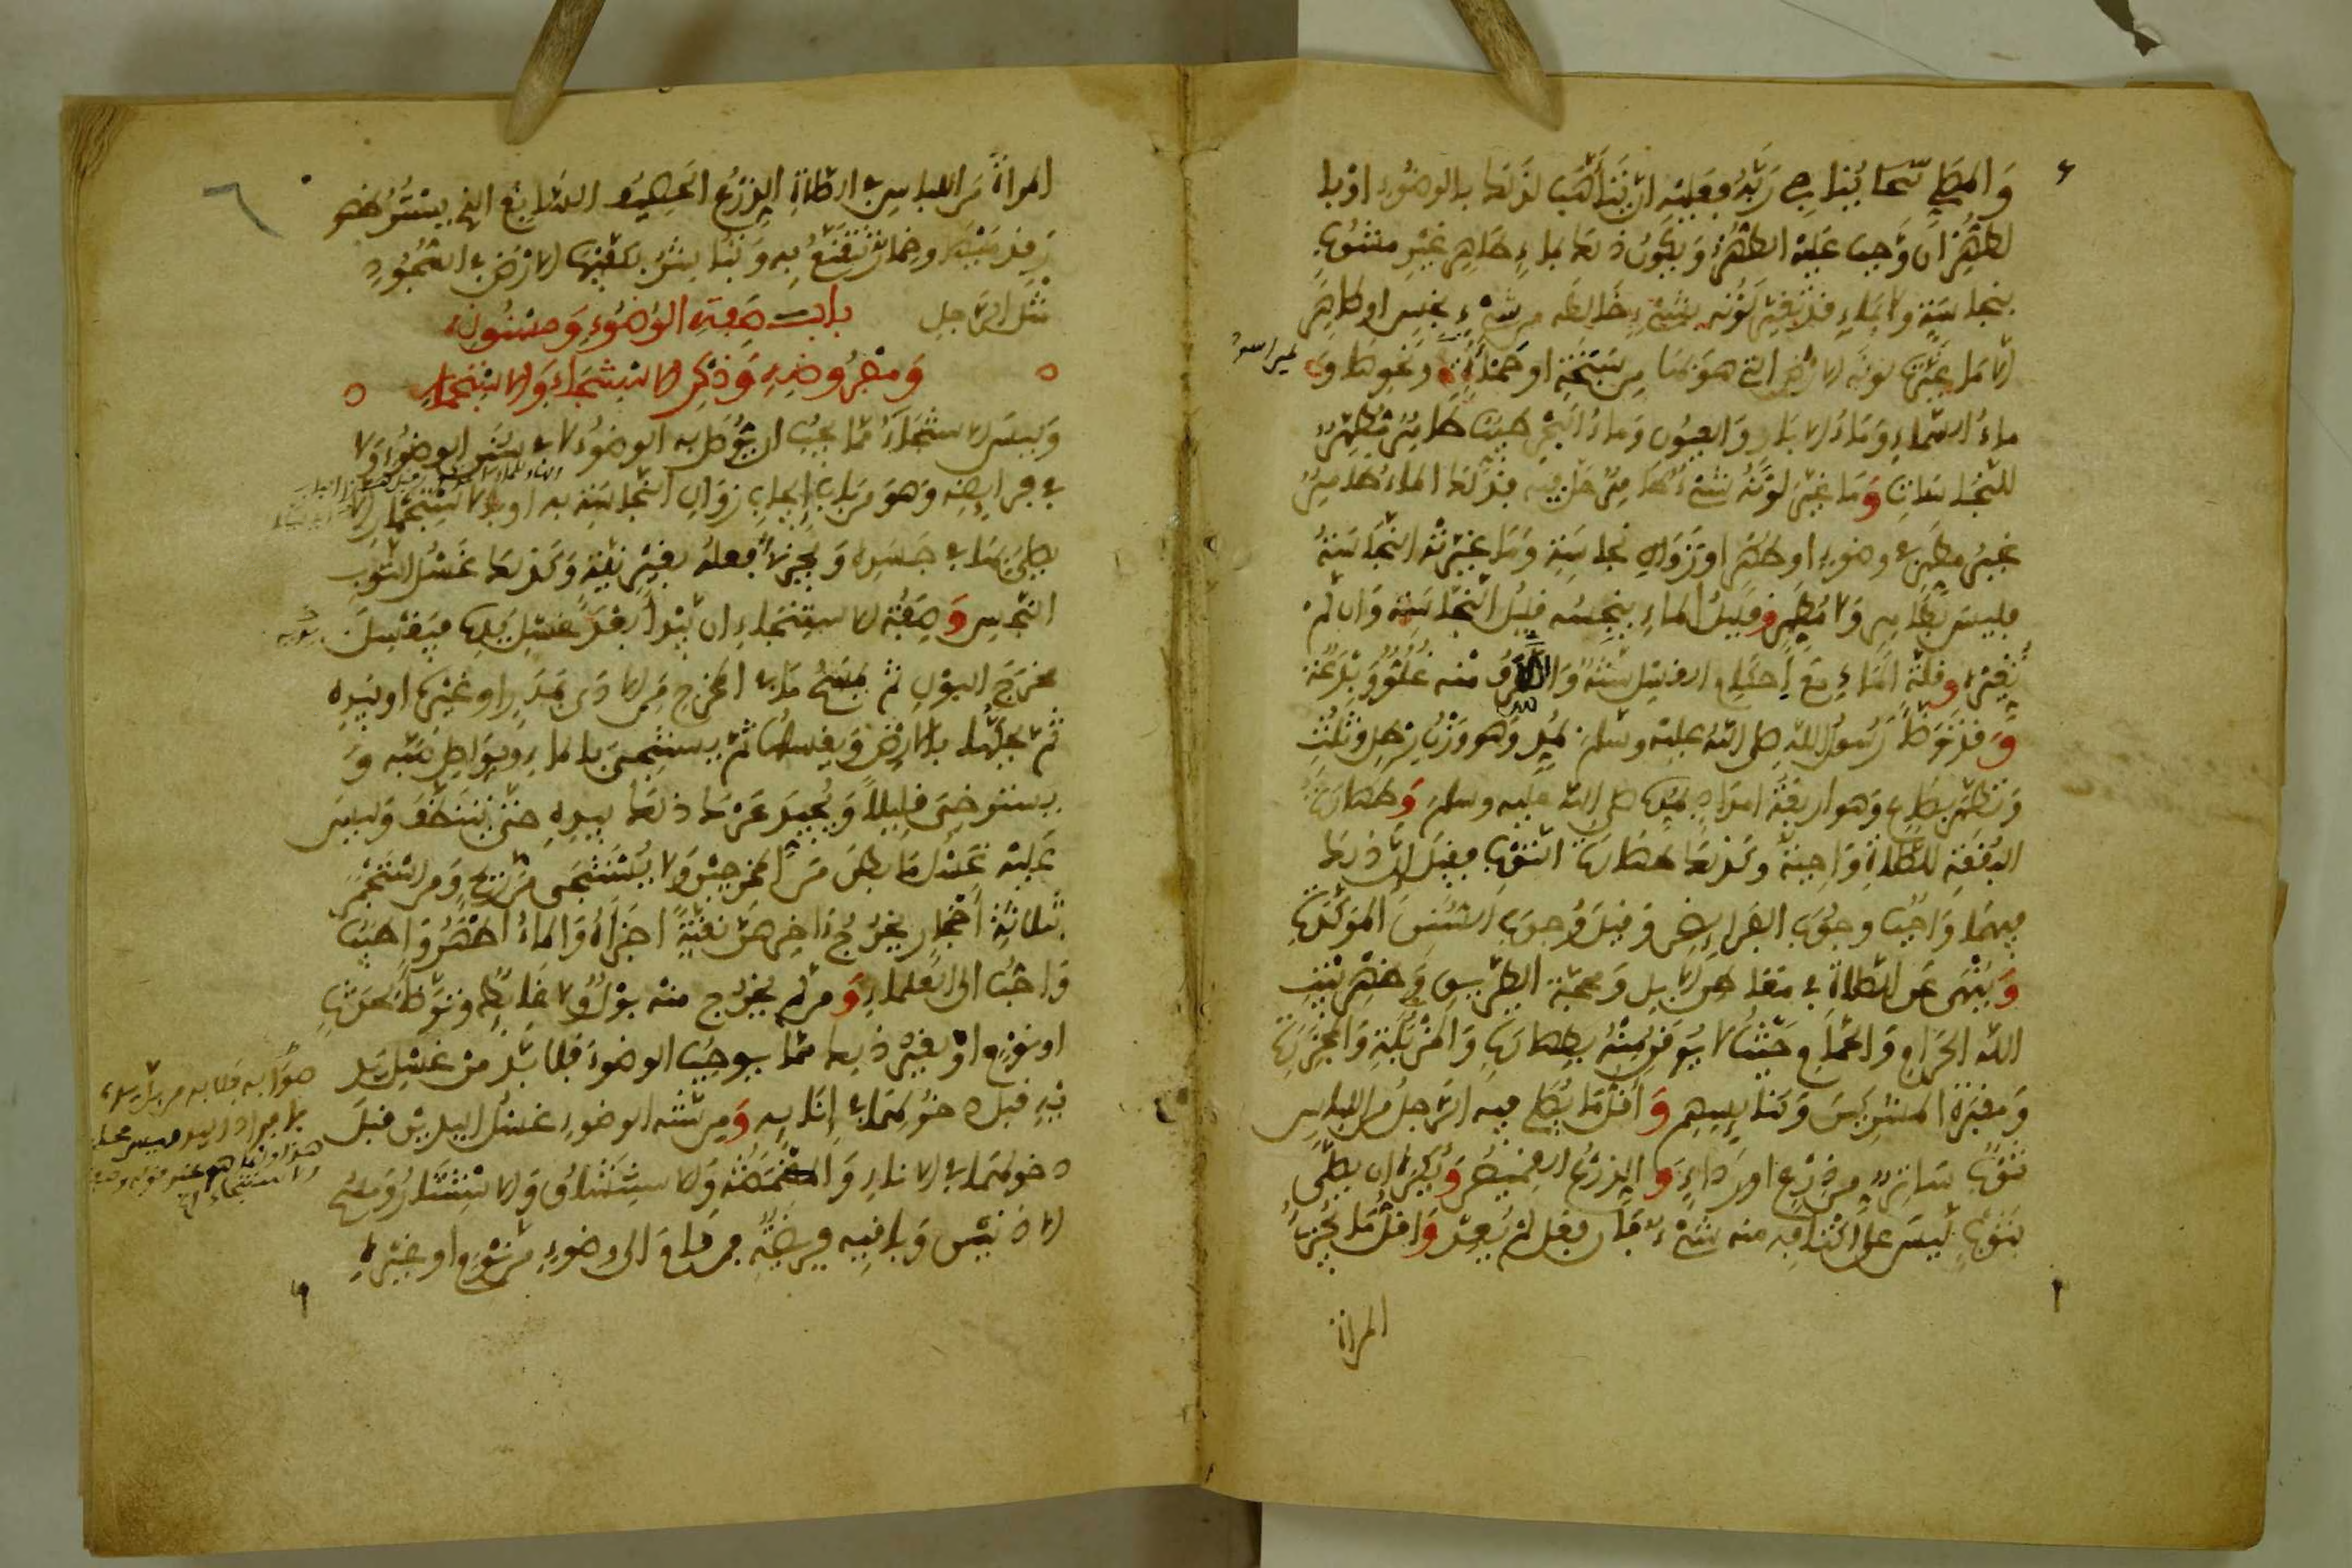 والمصلي ينا جي ربه فعليه ان يتأهب لذلك بالوضوء او با
لطهر ان وجب عليه الطهر ويكون ذلك بماء طاهر غير مشوب
بنجاسة ولا بماء قد تغير لونه بشيء خالطه من شيء نجس او طاهر
الا ما غيرت لونه الارض التي هو بها من سبخة او حمأة ونحوهما و
ماء السماء وماء الابار والعيون وماء البحر طيب طاهر مطهر
للنجاسات وما غير لونه شيء طاهر حل فيه فذلك الماء طاهر
غير مطهر في وضوء او طهر او زوال نجاسة وما غيرته النجاسة
فليس بطاهر ولا مطهر وقليل الماء ينجسه قليل النجاسة وان لم
تغيره وقلة الماء مع احكام الغسل سنة والسرف منه غلو وبدعة
وقد توضأ رسول الله صلى الله عليه وسلم بمد وهو وزن رطل وثلث
وتطهر بصاع وهو اربعة امداد بمده صلى الله عليه وسلم وطهارة
البقعة للصلاة واجبة وكذلك طهارة الثوب فقيل ان ذلك
فيهما واجب وجوب الفرائض وقيل وجوب السنن المؤكدة
وينهى عن الصلاة في معاطن الابل ومحجة الطريق وظهر بيت
الله الحرام والحمام حيث لا يوقن منه بطهارة والمزبلة والمجزرة
ومقبرة المشركين وكنائسهم واقل ما يصلي فيه الرجل من اللباس
ثوب ساتر من درع او رداء والدرع القميص ويكره ان يصلي
بثوب ليس على اكتافه منه شيء فان فعل لم يعد واقل ما يجزئ
المرأة
المرأة من اللباس في الصلاة الدرع الحصيف السابغ الذي يستر ظهور
قدميها وخمار تتقنع به وتباشر بكفيها الارض في السجود
مثل الرجل باب صفة الوضوء ومسنونه
ومفروضه وذكر الاستنجاء والاستجمار
وليس الاستنجاء مما يجب ان يوصل به الوضوء لا في سنن الوضوء ولا
في فرائضه وهو من باب ايجاب زوال النجاسة به او بالاستجمار لئلا
يصلي بها في جسده ويجزئ فعله بغير نية وكذلك غسل الثوب
النجس وصفة الاستنجاء ان يبدأ بعد غسل يده فيغسل
مخرج البول ثم يمسح ما في المخرج من الاذى بمدر او غيره او بيده
ثم يحكها بالارض ويغسلها ثم يستنجي بالماء ويواصل صبه و
يسترخي قليلا ويجيد عرك ذلك بيده حتى يتنظف وليس
عليه غسل ما بطن من المخرجين ولا يستنجى من ريح ومن استجمر
بثلاثة احجار يخرج اخرهن نقية اجزأه والماء اطهر واطيب
واحب الى العلماء ومن لم يخرج منه بول ولا غائط وتوضأ لحدث
او نوم او لغير ذلك مما يوجب الوضوء فلا بد من غسل يد
يه قبل دخولهما في انائه ومن سنة الوضوء غسل اليدين قبل
دخولهما في الاناء والمضمضة والاستنشاق والاستنثار ومسح
الاذنين وباقيه فريضة فمن قام الى وضوء من نوم او غيره